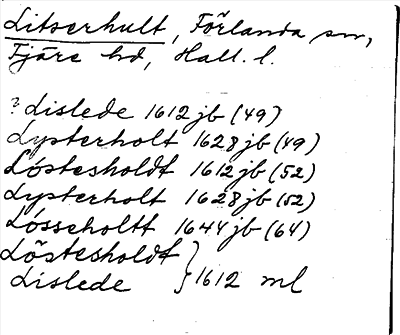 Litserhult, Förlanda sn,
Fjäre hd, Hall. l.
? Lislede 1612 jb (49)
Lysterholt 1628 jb (49)
Löstesholdt 1612 jb (52)
Lysterholt 1628 jb (52)
Lösseholtt 1644 jb (64)
Löstesholdt } 1612 ml
Lislede